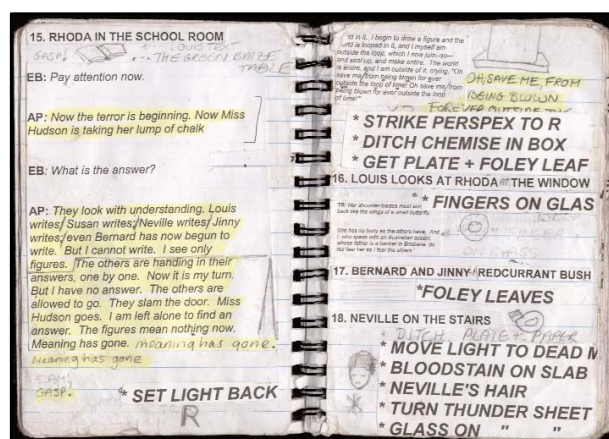 15. RHODA IN THE SCHOOL ROOM
GASP!
LOUIS TEXT
... THE GREEN BAIZE
TABLE
EB: Pay attention now.
AP: Now the terror is beginning. Now Miss
Hudson is taking her lump of chalk
EB: What is the answer?
AP: They look with understanding. Louis
writes; Susan writes; Neville writes; Jinny
writes; even Bernard has now begun to
write. But I cannot write. I see only
figures. The others are handing in their
answers, one by one. Now it is my turn.
But I have no answer. The others are
allowed to go. They slam the door. Miss
Hudson goes. I am left alone to find an
answer. The figures mean nothing now.
Meaning has gone. meaning has gone.
Meaning has gone
SLAM!
GASP!
* SET LIGHT BACK
R
in it. I begin to draw a figure and the
world is looped in it, and I myself am
outside the loop; which I now join—so—
and seal up, and make entire. The world
is entire, and I am outside of it, crying, "Oh
save me, from being blown for ever
outside the loop of time! Oh save me from
being blown for ever outside the loop
of time!"
OH, SAVE ME, FROM
BEING BLOWN
FOREVER OUTSIDE
* STRIKE PERSPEX TO R
* DITCH CHEMISE IN BOX
* GET PLATE + FOLEY LEAF
16. LOUIS LOOKS AT RHODA THE WINDOW
* FINGERS ON GLAS
TR: Her shoulder-blades meet
back like the wings of a small butterfly.
She has no body as the others have. And
I, who speak with an Australian accent,
whose father is a banker in Brisbane, do
not fear her as I fear the others.
17. BERNARD AND JINNY REDCURRANT BUSH
*FOLEY LEAVES
18. NEVILLE ON THE STAIRS
- DITCH PLATE + PAPER
* MOVE LIGHT TO DEAD M
* BLOODSTAIN ON SLAB
* NEVILLE'S HAIR
* TURN THUNDER SHEET
* GLASS ON " "